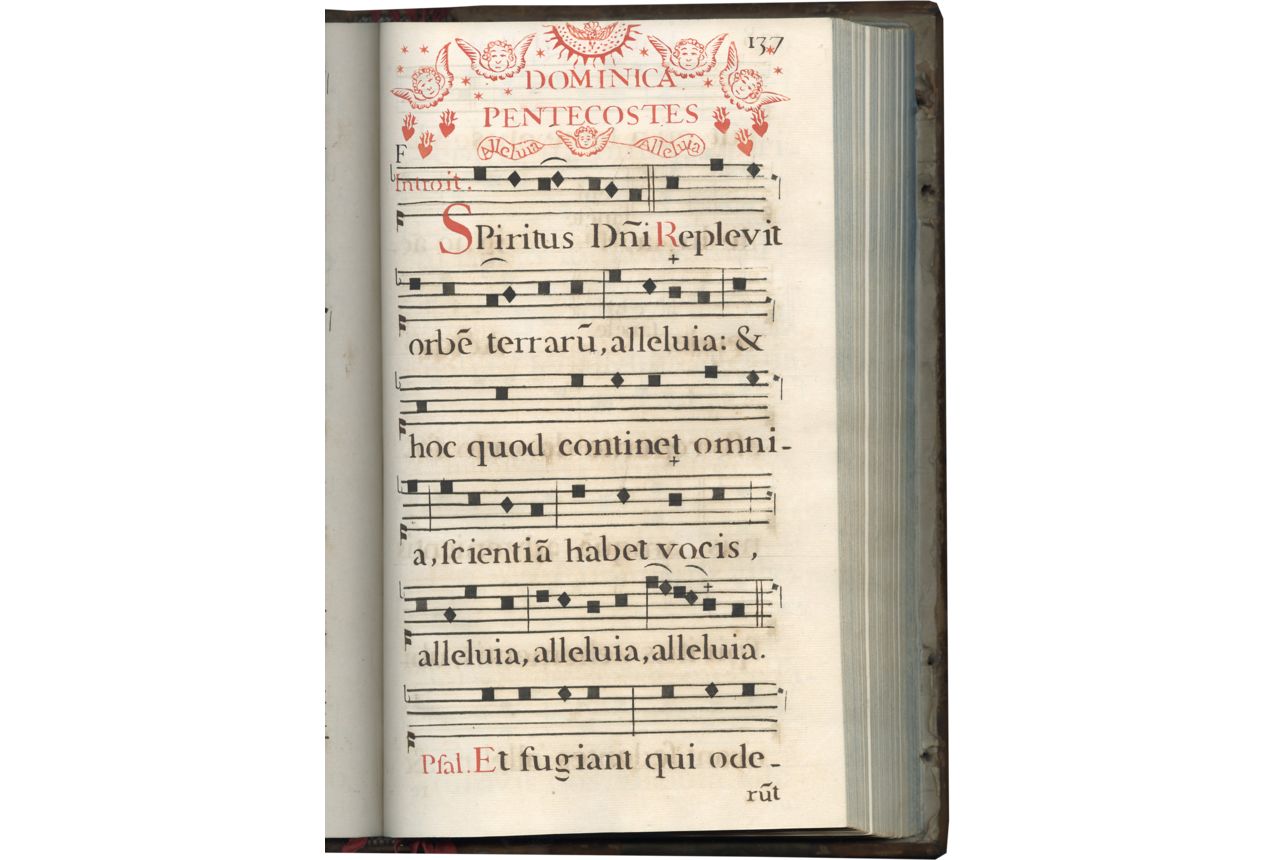 137
DOMINICA
PENTECOSTES
Alleluia Alleluia
F
Introit.
SPiritus Dñi Replevit
orbē terrarū, alleluia: &
hoc quod continet omni-
a, ſcientiā habet vocis,
alleluia, alleluia, alleluia.
Pſal. Et fugiant qui ode-
rūt